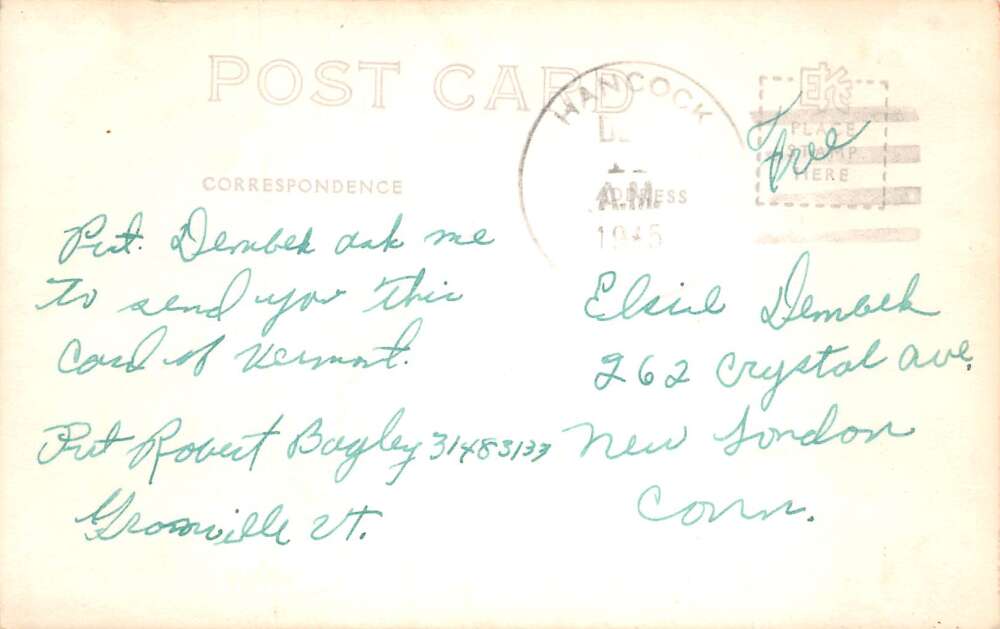 POST CARD
HANCOCK
A.M.
1945
EKC
PLACE
STAMP
HERE
Free
CORRESPONDENCE
ADDRESS
Pvt. Dembek ask me
to send you this
Card of Vermont.
Pvt Robert Bagley 31483137
Granville Vt.
Elsie Dembek
262 Crystal Ave.
New London
Conn.